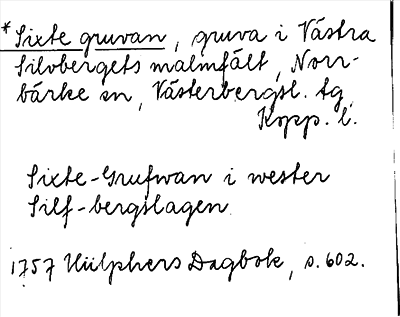 *Sixte gruvan, gruva i Västra
Silvbergets malmfält, Norr-
bärke sn, Västerbergsl. tg,
Kopp. l.
Sixte-Grufwan i wester
Silf-bergslagen
1757 Hülphers Dagbok, s. 602.